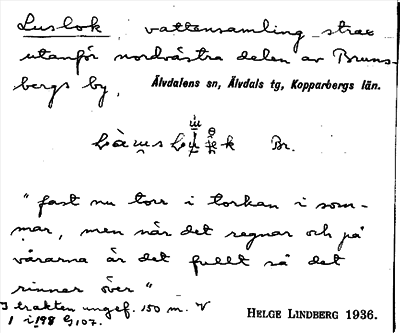 Luslok, vattensamling strax
utanför nordvästra delen av Bruns-
bergs by.
Älvdalens sn, Älvdals tg, Kopparbergs län.
Br.
"fast nu torr i torkan i som-
mar, men när det regnar och på
vårarna är det fullt så det
rinner över"
I trakten ungef. 150 m. V
1 i 198 G 107.
HELGE LINDBERG 1936.